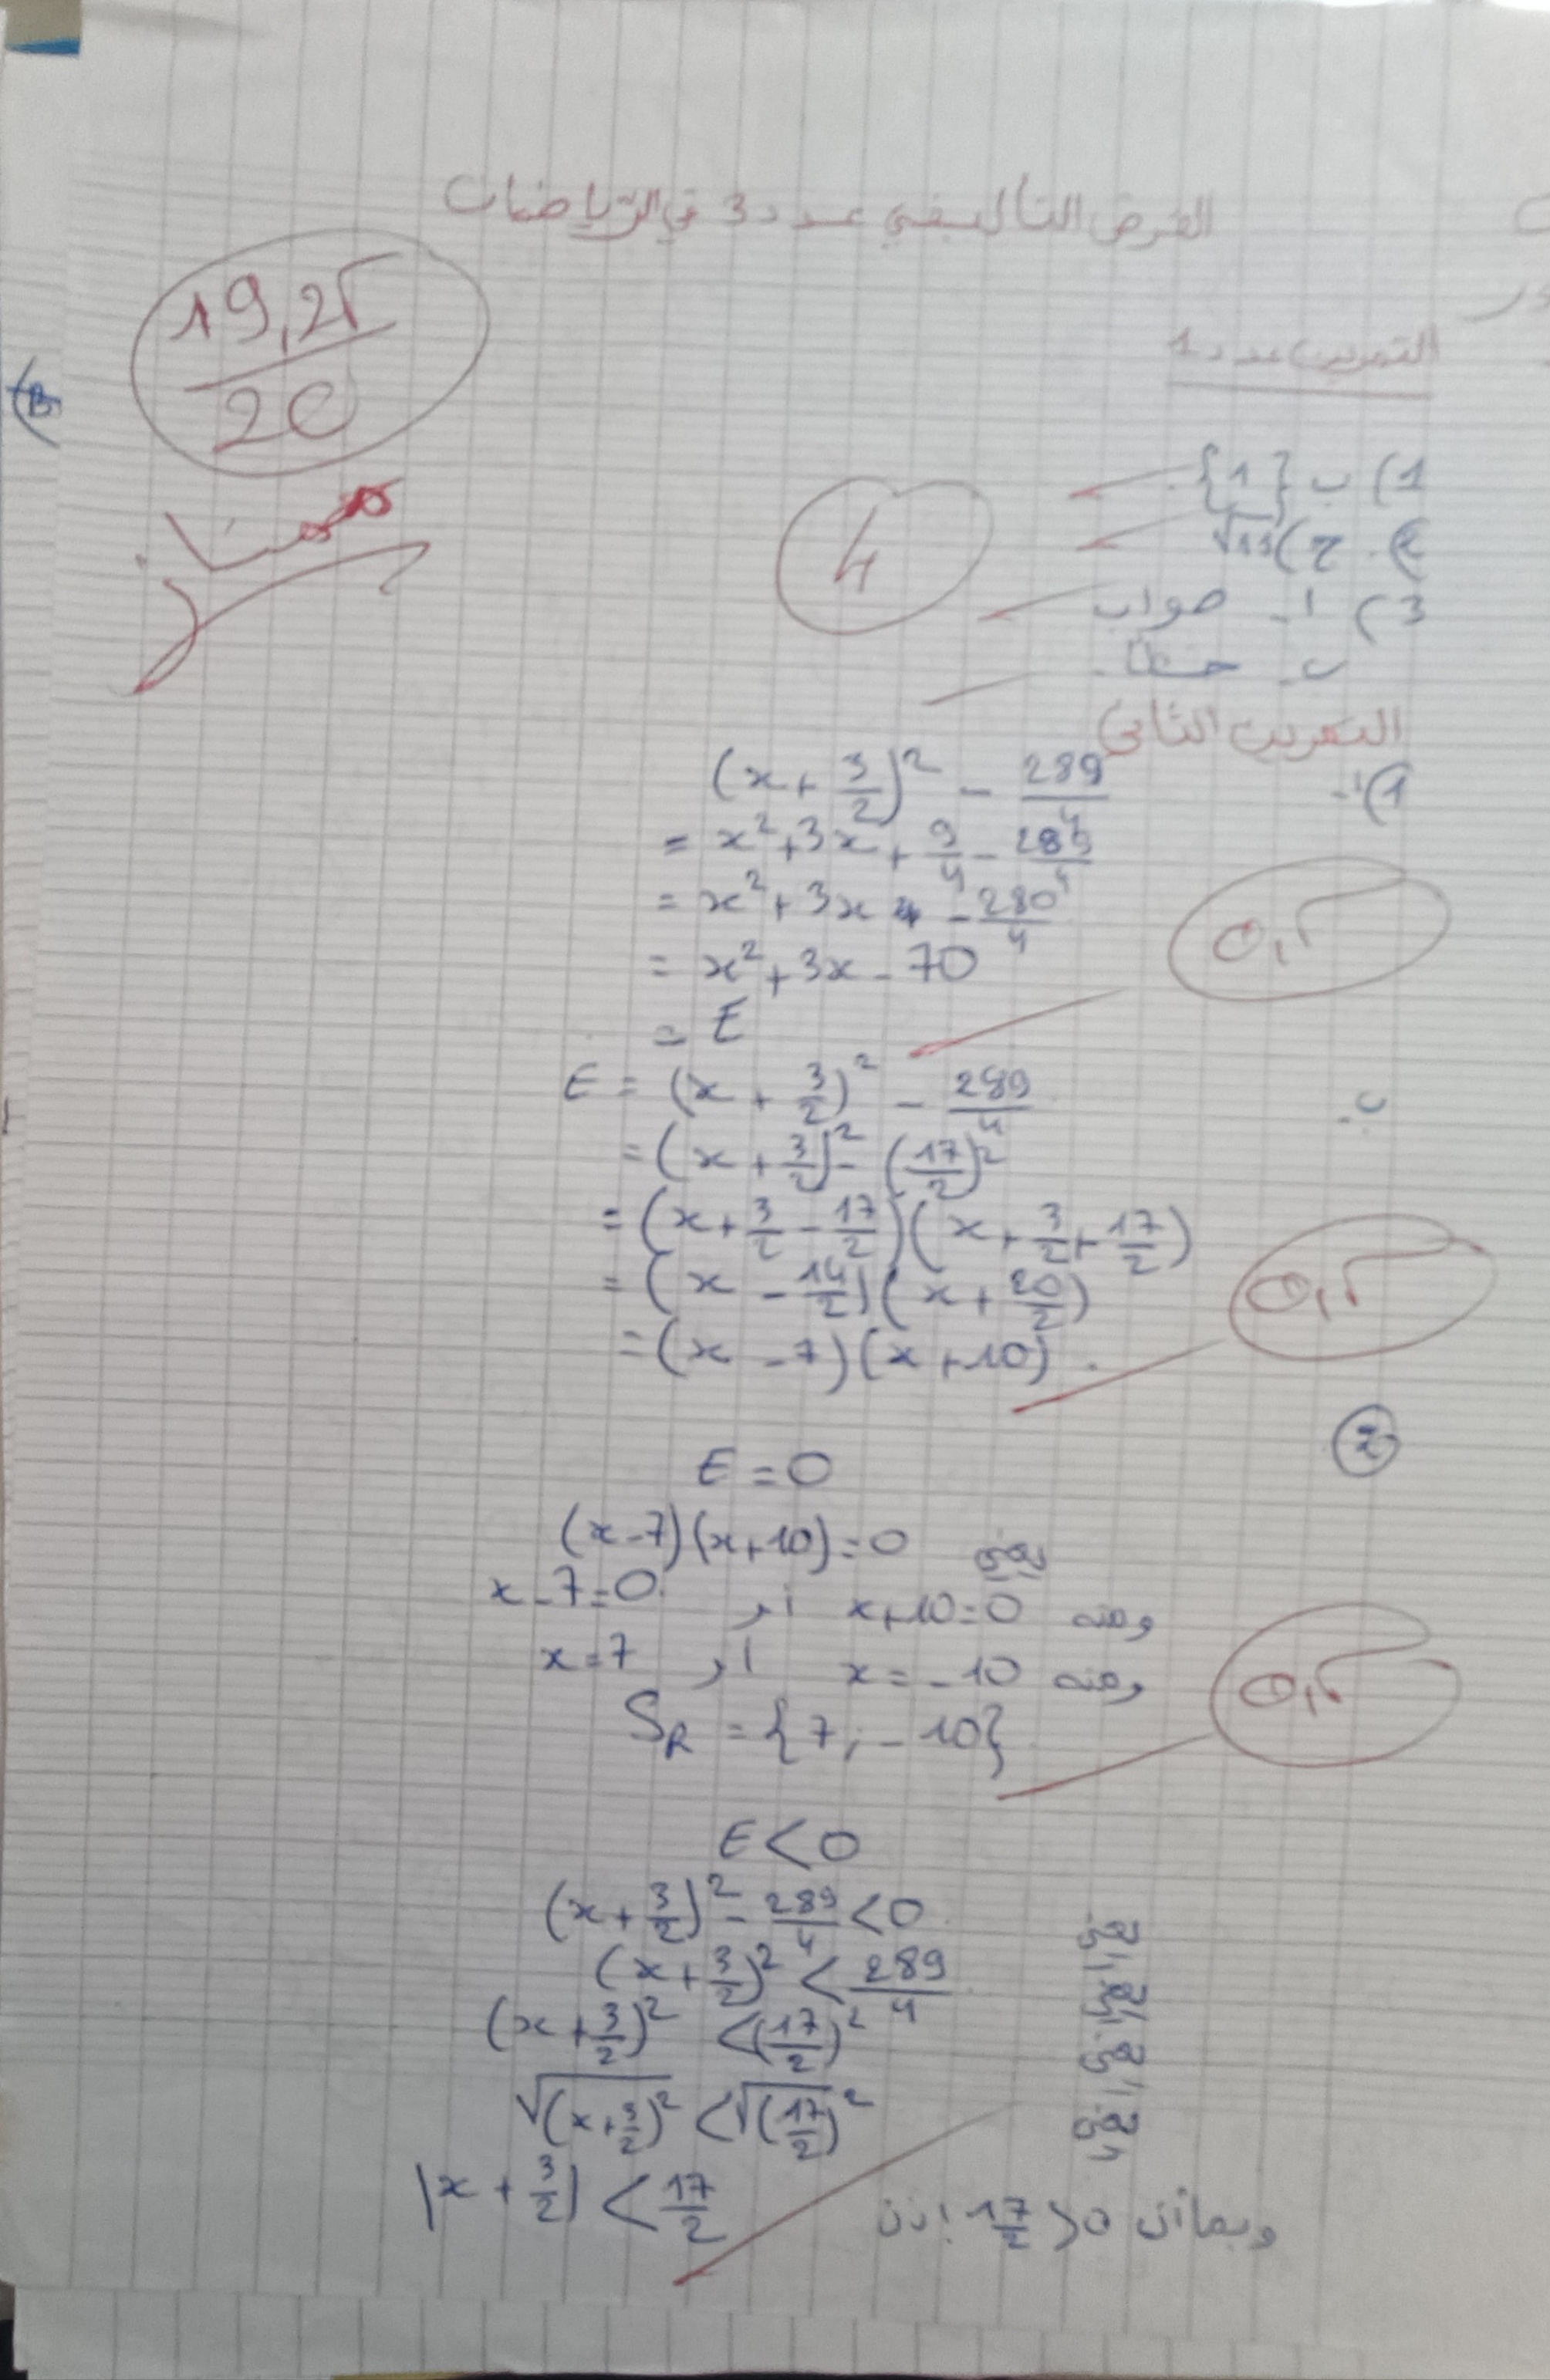 الفرض التأليفي عدد 3 في الرياضيات
19,25
20
التمرين عدد 1
1) ب {1}
2) ج) √11
4
3) أ- صواب
ب- خطأ
التمرين الثاني
1) أ- (x + 3/2)² - 289/4
= x² + 3x + 9/4 - 289/4
= x² + 3x - 280/4
0,5
= x² + 3x - 70
= E
ب- E = (x + 3/2)² - 289/4
= (x + 3/2)² - (17/2)²
= (x + 3/2 - 17/2)(x + 3/2 + 17/2)
0,5
= (x - 14/2)(x + 20/2)
= (x - 7)(x + 10)
2
E = 0
(x - 7)(x + 10) = 0 يعني
x - 7 = 0 أو x + 10 = 0 ومنه
x = 7 أو x = -10 ومنه
0,5
S_R = {7; -10}
E < 0
(x + 3/2)² - 289/4 < 0 يعني
(x + 3/2)² < 289/4 يعني
(x + 3/2)² < (17/2)² يعني
√(x + 3/2)² < √(17/2)² يعني
|x + 3/2| < 17/2 وبما أن 17/2 > 0 إذن